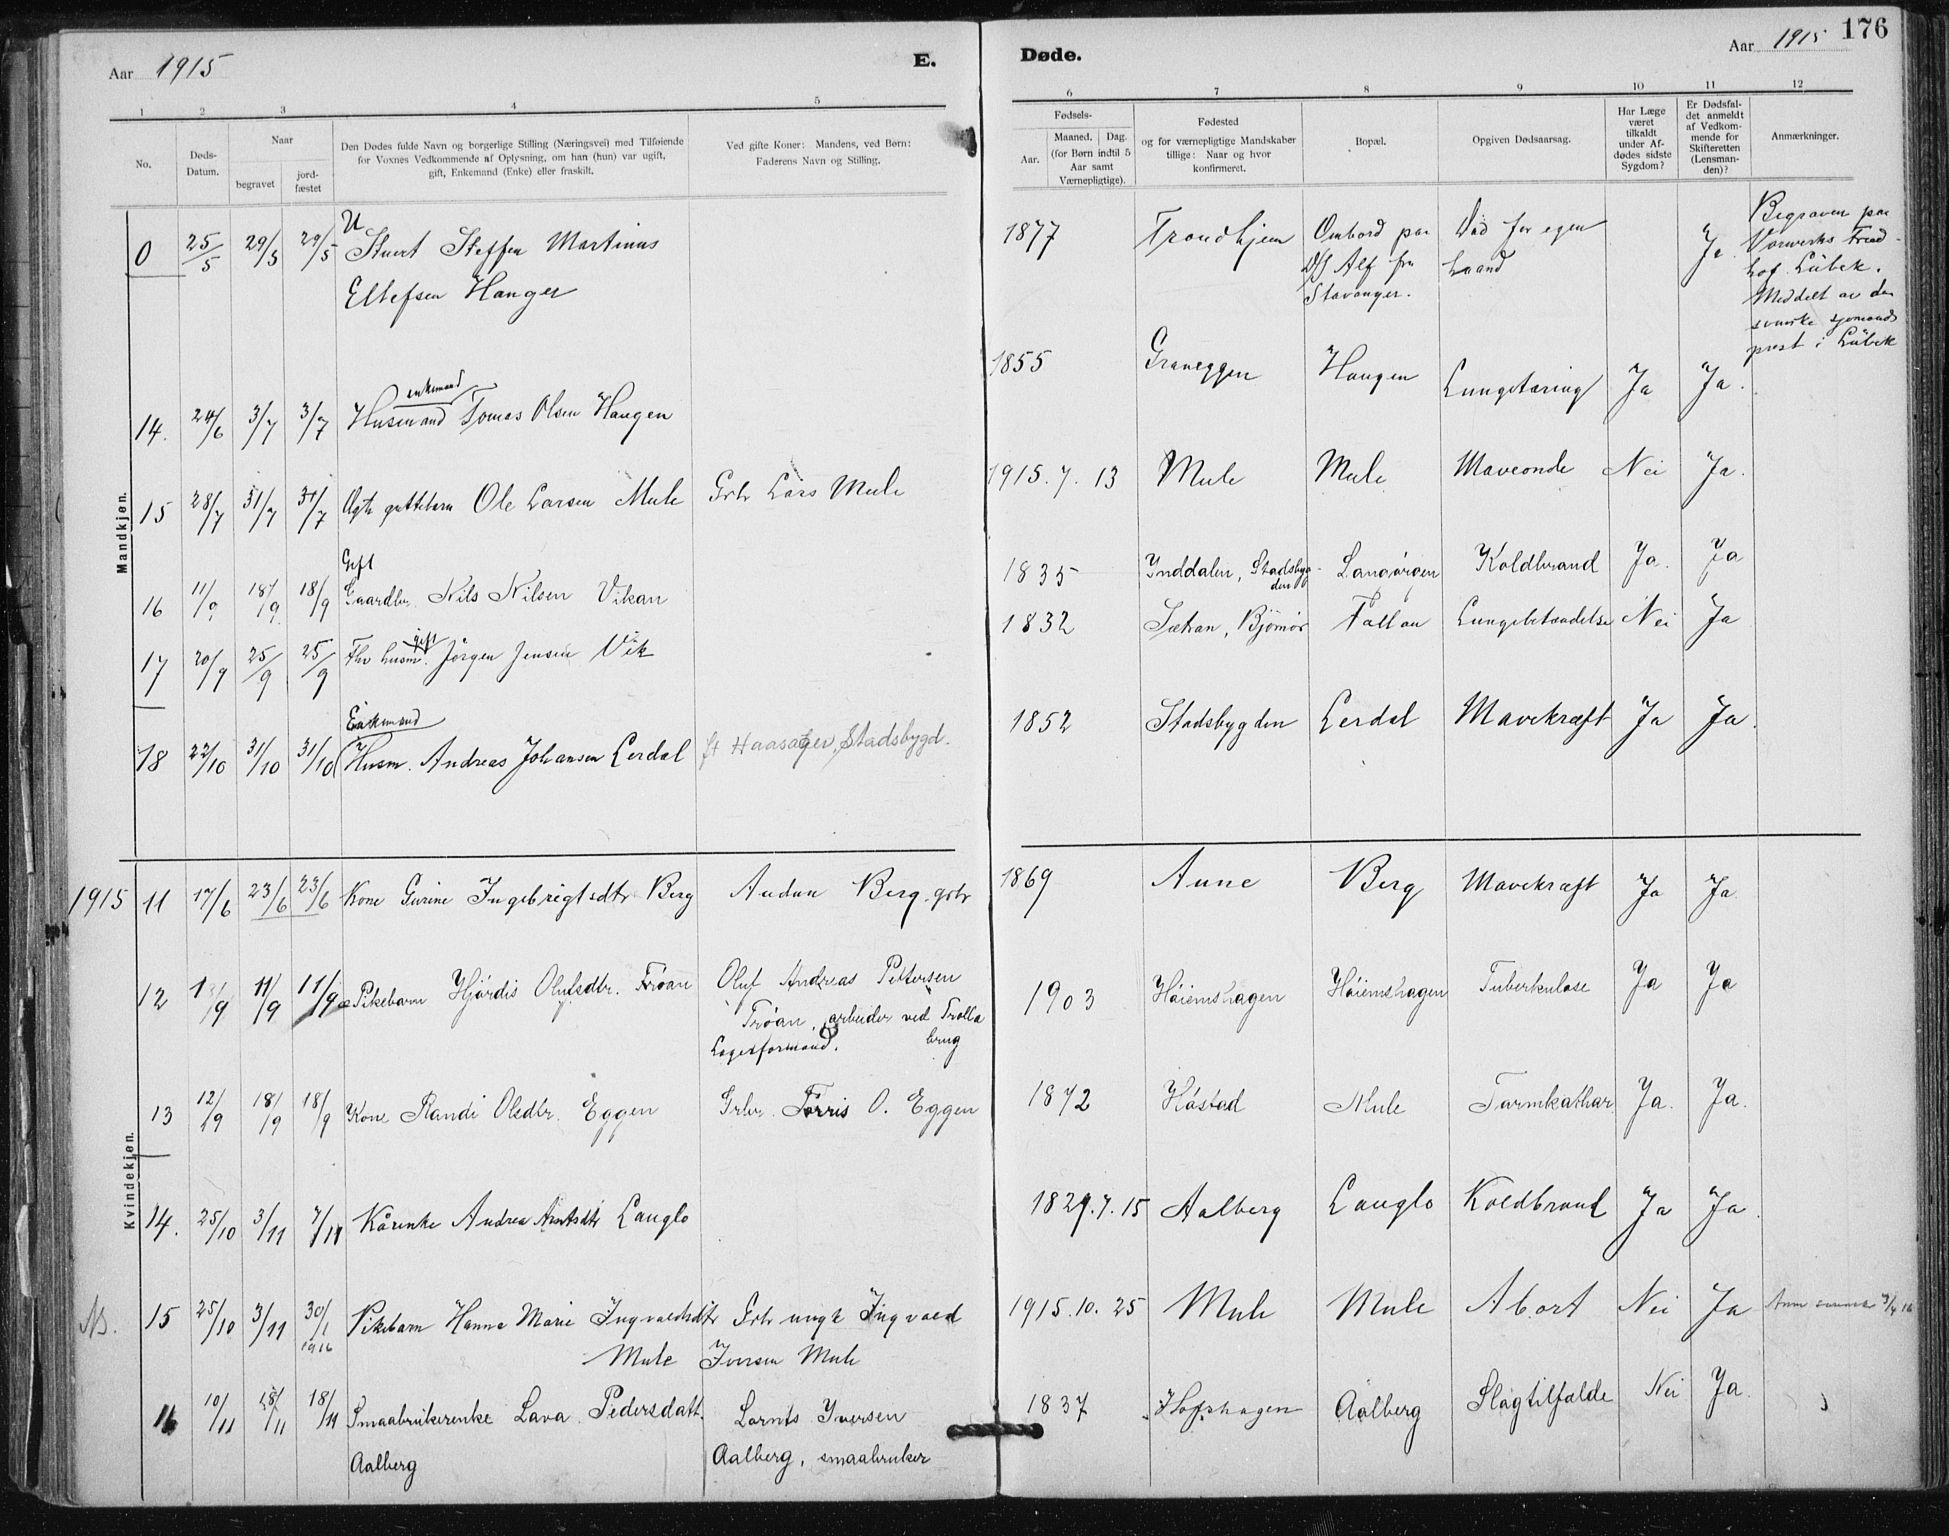 Aar 1915
E.
Døde.
Aar 1915
176
1 2 3 4 5
6 7 8 9 10 11 12
No.
Døds-
Datum.
Naar
begravet
jord-
fæstet
Den Dødes fulde Navn og borgerlige Stilling (Næringsvei) med Tilføiende
for Voxnes Vedkommende af Oplysning, om han (hun) var ugift,
gift, Enkemand (Enke) eller fraskilt.
Ved gifte Koner: Mandens, ved Børn:
Faderens Navn og Stilling.
Fødsels-
Aar.
Maaned. Dag.
(for Børn indtil 5
Aar samt
Værnepligtige).
Fødested
og for værnepligtige Mandskaber
tillige: Naar og hvor
konfirmeret.
Bopæl.
Opgiven Dødsaarsag.
Har Læge
været
tilkaldt
under Af-
dødes sidste
Sygdom?
Er Dødsfal-
det anmeldt
af Vedkom-
mende for
Skifteretten
(Lensman-
den)?
Anmærkninger.
Mandkjøn.
U
0 25/5 29/5 29/5 Stuert Steffen Martinus
Ellefsen Hanger
1877 Trondhjem Ombord paa Død for egen Ja
D/S Alf fra haand
Stavanger.
Begraven paa
Vorwerks Fried-
hof Lübek.
Meddelt av den
svenske sjømands
prest i Lübek
enkemand
14. 24/6 3/7 3/7 Husmand Tomas Olsen Haugen
1855 Graneggen Haugen Lungetæring Ja Ja.
15 28/7 31/7 31/7 Ægte guttebarn Ole Larsen Mule Grbr Lars Mule
1915. 7. 13 Mule Mule Maveonde Nei Ja.
Gift
16 11/9 18/9 18/9 Gaardbr. Nils Nilsen Vikan
1835 Ynddalen, Stadsbyg-
den Langørgen Koldbrand Ja. Ja
gift
17 20/9 25/9 25/9 Fhv husm. Jørgen Jensen Vik
1832 Sætran, Bjørnør Fallan Lungebetændelse Nei Ja
Enkemand
18 22/10 31/10 31/10 Husm. Andreas Johansen Lerdal f. Haasager, Stadsbygd.
1852 Stadsbygden Lerdal Mavekræft Ja Ja.
Kvindekjøn.
1915 11 17/6 23/6 23/6 Kone Gurine Ingebrigtsdtr Berg Audun Berg. grbr
1869 Aune Berg Mavekræft Ja Ja.
12 /9 11/9 11/9 Pikebarn Hjørdis Olufsdtr. Trøan Oluf Andreas Pettersen
Trøan, arbeider ved Trolla
brug
Lagesformand.
1903 Høiemshagen Høiemshagen Tuberkulose Ja Ja
13 12/9 18/9 18/9 Kone Randi Olsdtr. Eggen Grbr. Tørris O. Eggen
1872 Høstad Mule Tarmkathar Ja. Ja.
14. 25/10 3/11 7/11 Kårenke Andrea Arntsdtr Langlo
1829. 7. 15 Aalberg Langlo Koldbrand Ja Ja.
Nb. 15 25/10 3/11 30/1 1916 Pikebarn Hanna Marie Ingvaldsdtr Grbr ungk Ingvald
Mule Iversen Mule
1915. 10. 25 Mule Mule Abort Nei Ja
16 10/11 18/11 18/11 Smaabrukerenke Lava Pedersdatt. Lornts Iversen
Aalberg Aalberg, smaabruker
1837 Hofshagen Aalberg Slagtilfælde Nei Ja.